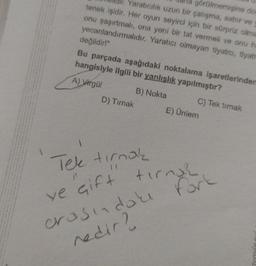 görülmemişine do
Yaratıcılık uzun bir çalışma, sabır ve
tenek işidir. Her oyun seyirci için bir sürpriz olma
onu şaşırtmalı, ona yeni bir tat vermeli ve onu h
yecanlandırmalıdır. Yaratıcı olmayan tiyatro, tiyatr
değildir!"
Bu parçada aşağıdaki noktalama işaretlerinden
hangisiyle ilgili bir yanlışlık yapılmıştır?
A) Virgül B) Nokta C) Tek tırnak
D) Tırnak E) Ünlem
Tek tırnak
ve "çift" tırnak
arasındaki fark
nedir?